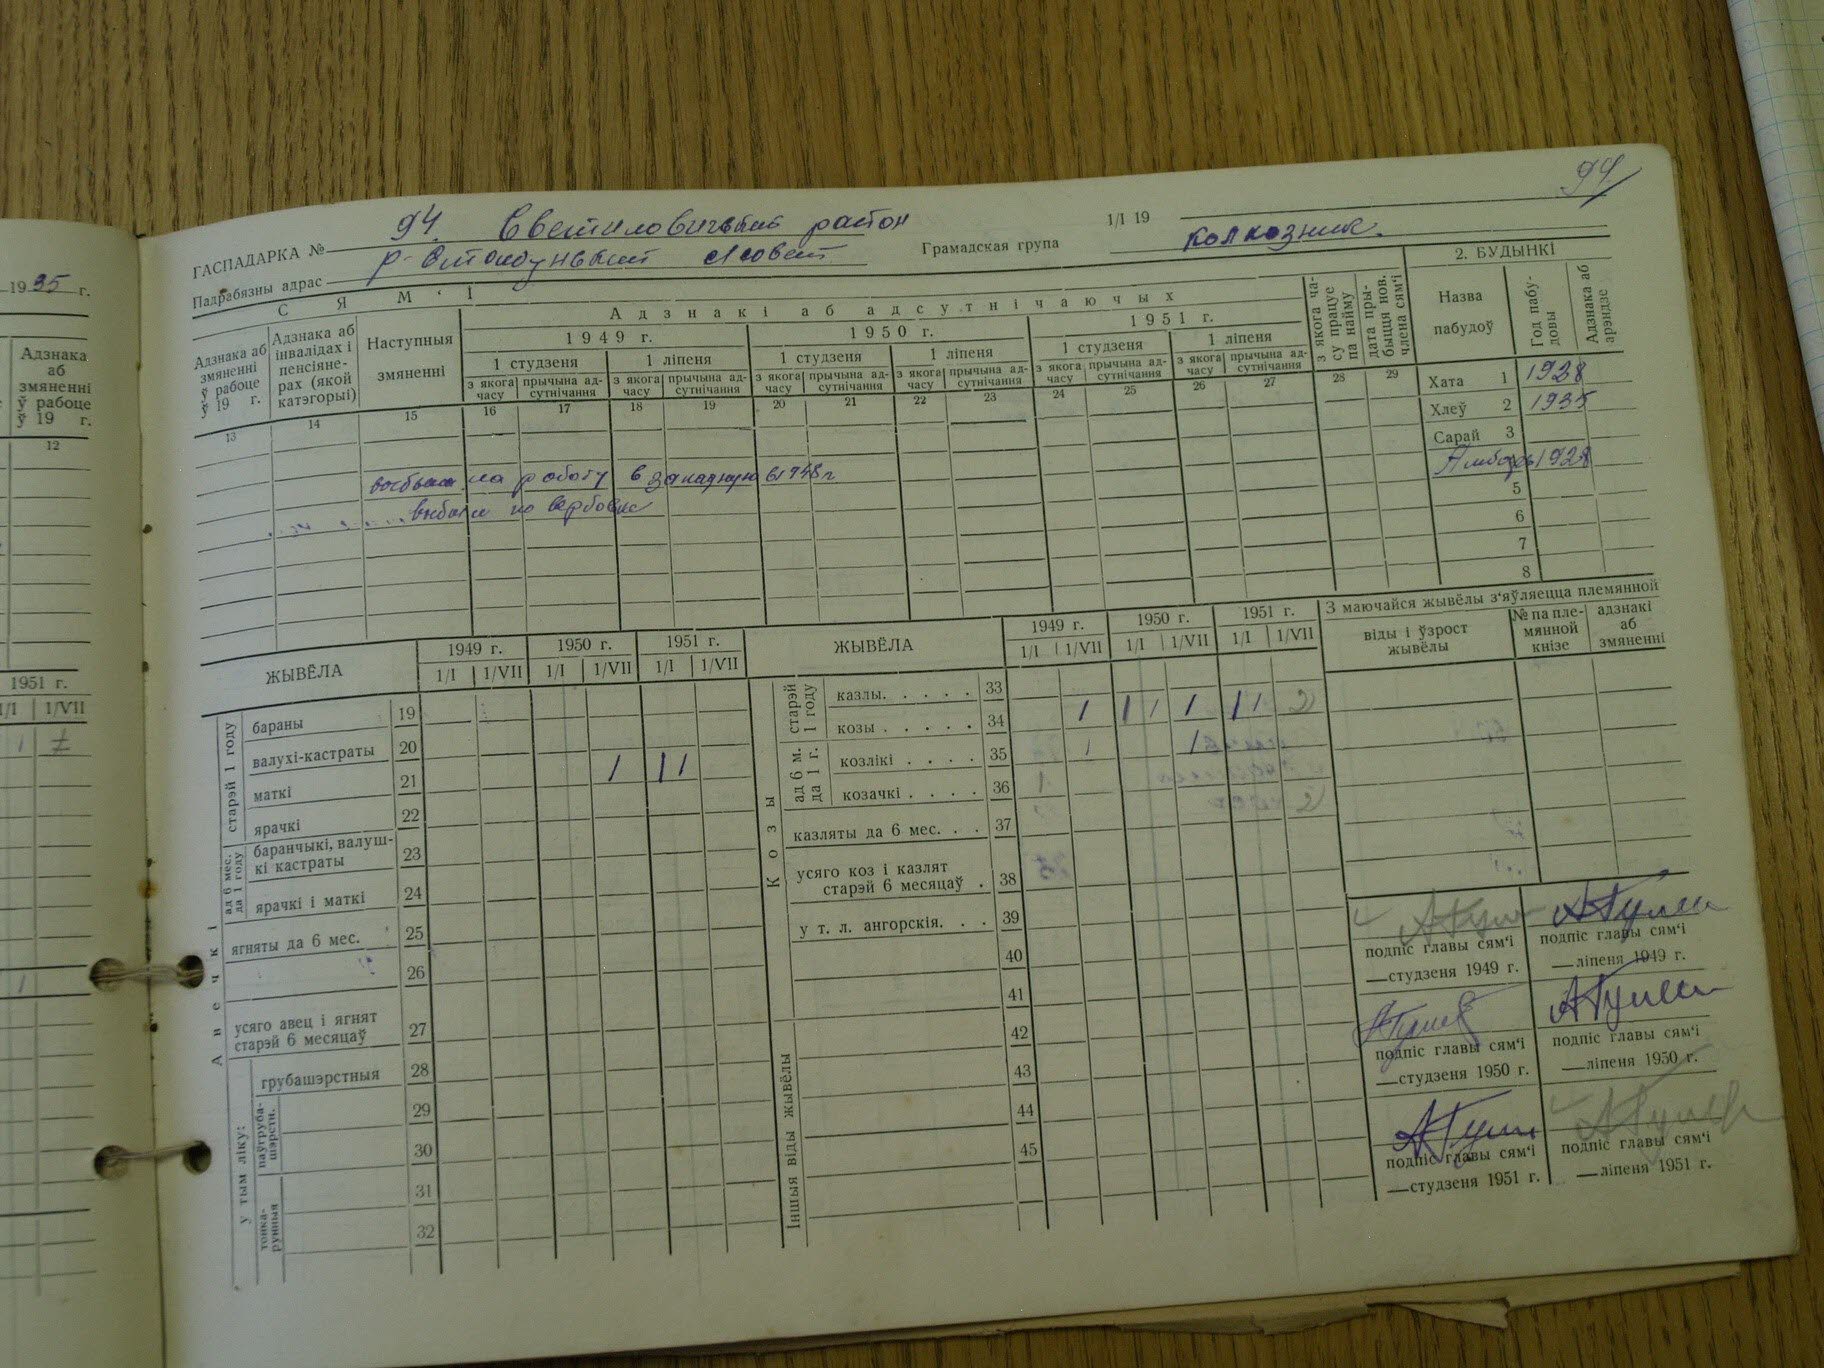 94/
1935 г.
ГАСПАДАРКА № 94. Светиловичский район
1/I 19
Падрабязны адрас
с/совет
Грамадская група колхозник.
СЯМ'І
Адзнакі аб адсутнічаючых
2. БУДЫНКІ
Адзнака аб змяненні ў рабоце ў 19 г.
Адзнака аб інвалідах і пенсіянерах (якой катэгорыі)
Наступныя змяненні
1949 г.
1950 г.
1951 г.
1 студзеня
1 ліпеня
1 студзеня
1 ліпеня
1 студзеня
1 ліпеня
з якога часу
прычына адсутнічання
з якога часу
прычына адсутнічання
з якога часу
прычына адсутнічання
з якога часу
прычына адсутнічання
з якога часу
прычына адсутнічання
з якога часу
прычына адсутнічання
з якога часу працуе па найму
дата прыбыцця нов. члена сям'і
Назва пабудоў
Год пабудовы
Адзнака аб арэндзе
13 14 15 16 17 18 19 20 21 22 23 24 25 26 27 28 29
Хата 1 1928
Хлеў 2 1935
Сарай 3
Амбар 1928
5
6
7
8
на работу в западную в 1948 г
по вербовке
Адзнака аб змяненні ў рабоце ў 19 г.
12
1951 г.
1/I 1/VII
ЖЫВЁЛА
1949 г. 1950 г. 1951 г.
1/I 1/VII 1/I 1/VII 1/I 1/VII
Авечкі
старэй 1 году
бараны 19
валухі-кастраты 20
маткі 21 1 1 1
ярачкі 22
ад 6 мес. да 1 году
баранчыкі, валушкі кастраты 23
ярачкі і маткі 24
ягняты да 6 мес. 25
26
усяго авец і ягнят старэй 6 месяцаў 27
у тым ліку:
грубашэрстныя 28
паўгрубашэрстн. 29
30
тонкарунныя 31
32
ЖЫВЁЛА
1949 г. 1950 г. 1951 г.
1/I 1/VII 1/I 1/VII 1/I 1/VII
Козы
старэй 1 году
казлы. . . . . 33
козы . . . . . 34 1 1 1 1 1 1 2
ад 6 м. да 1 г.
козлікі . . . . 35 1 1
козачкі . . . . 36
казляты да 6 мес. . . 37
усяго коз і казлят старэй 6 месяцаў . 38
у т. л. ангорскія. . . 39
40
41
Іншыя віды жывёлы
42
43
44
45
З маючайся жывёлы з'яўляецца племянной
віды і ўзрост жывёлы
№ па племянной кнізе
адзнакі аб змяненні
подпіс главы сям'і
—студзеня 1949 г.
подпіс главы сям'і
—ліпеня 1949 г.
подпіс главы сям'і
—студзеня 1950 г.
подпіс главы сям'і
—ліпеня 1950 г.
подпіс главы сям'і
—студзеня 1951 г.
подпіс главы сям'і
—ліпеня 1951 г.